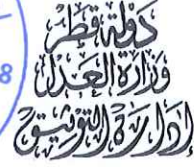 دولة قطر
وزارة العدل
إدارة التوثيق
8